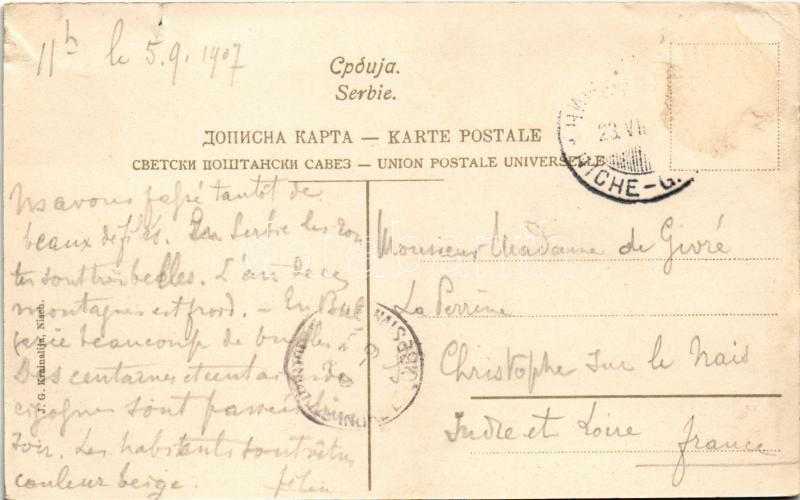 11h le 5.9.1907
Србија.
Serbie.
ДОПИСНА КАРТА — KARTE POSTALE
СВЕТСКИ ПОШТАНСКИ САВЕЗ — UNION POSTALE UNIVERSELLE
23.VI
NICHE-G.
Ns avons passé tantôt de
beaux defilés. En Serbie les rou
tes sont très belles. L'air de ces
montagnes est froid. — En Bul
garie beaucoup de buffles.
Des centaines et centaines de
cigognes sont passées
soir. Les habitants sont vêtus
couleur beige.
Monsieur Madame de Givré
La Perrine
Christophe sur le Nais
Indre et Loire
France
J. G. Krainalija, Nisch.